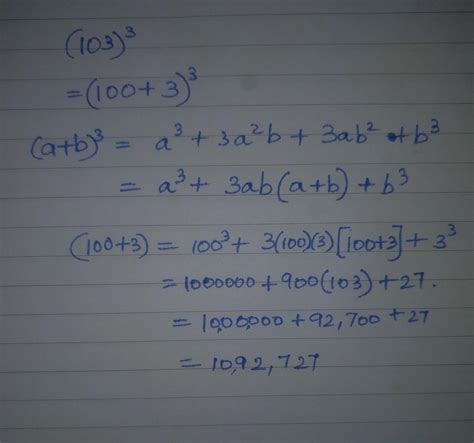 (103)³
=(100+3)³
(a+b)³ = a³ + 3a²b + 3ab² + b³
= a³ + 3ab(a+b) + b³
(100+3) = 100³ + 3(100)(3)[100+3] + 3³
= 1000000 + 900(103) + 27.
= 10,00,000 + 92,700 + 27
= 10,92,727